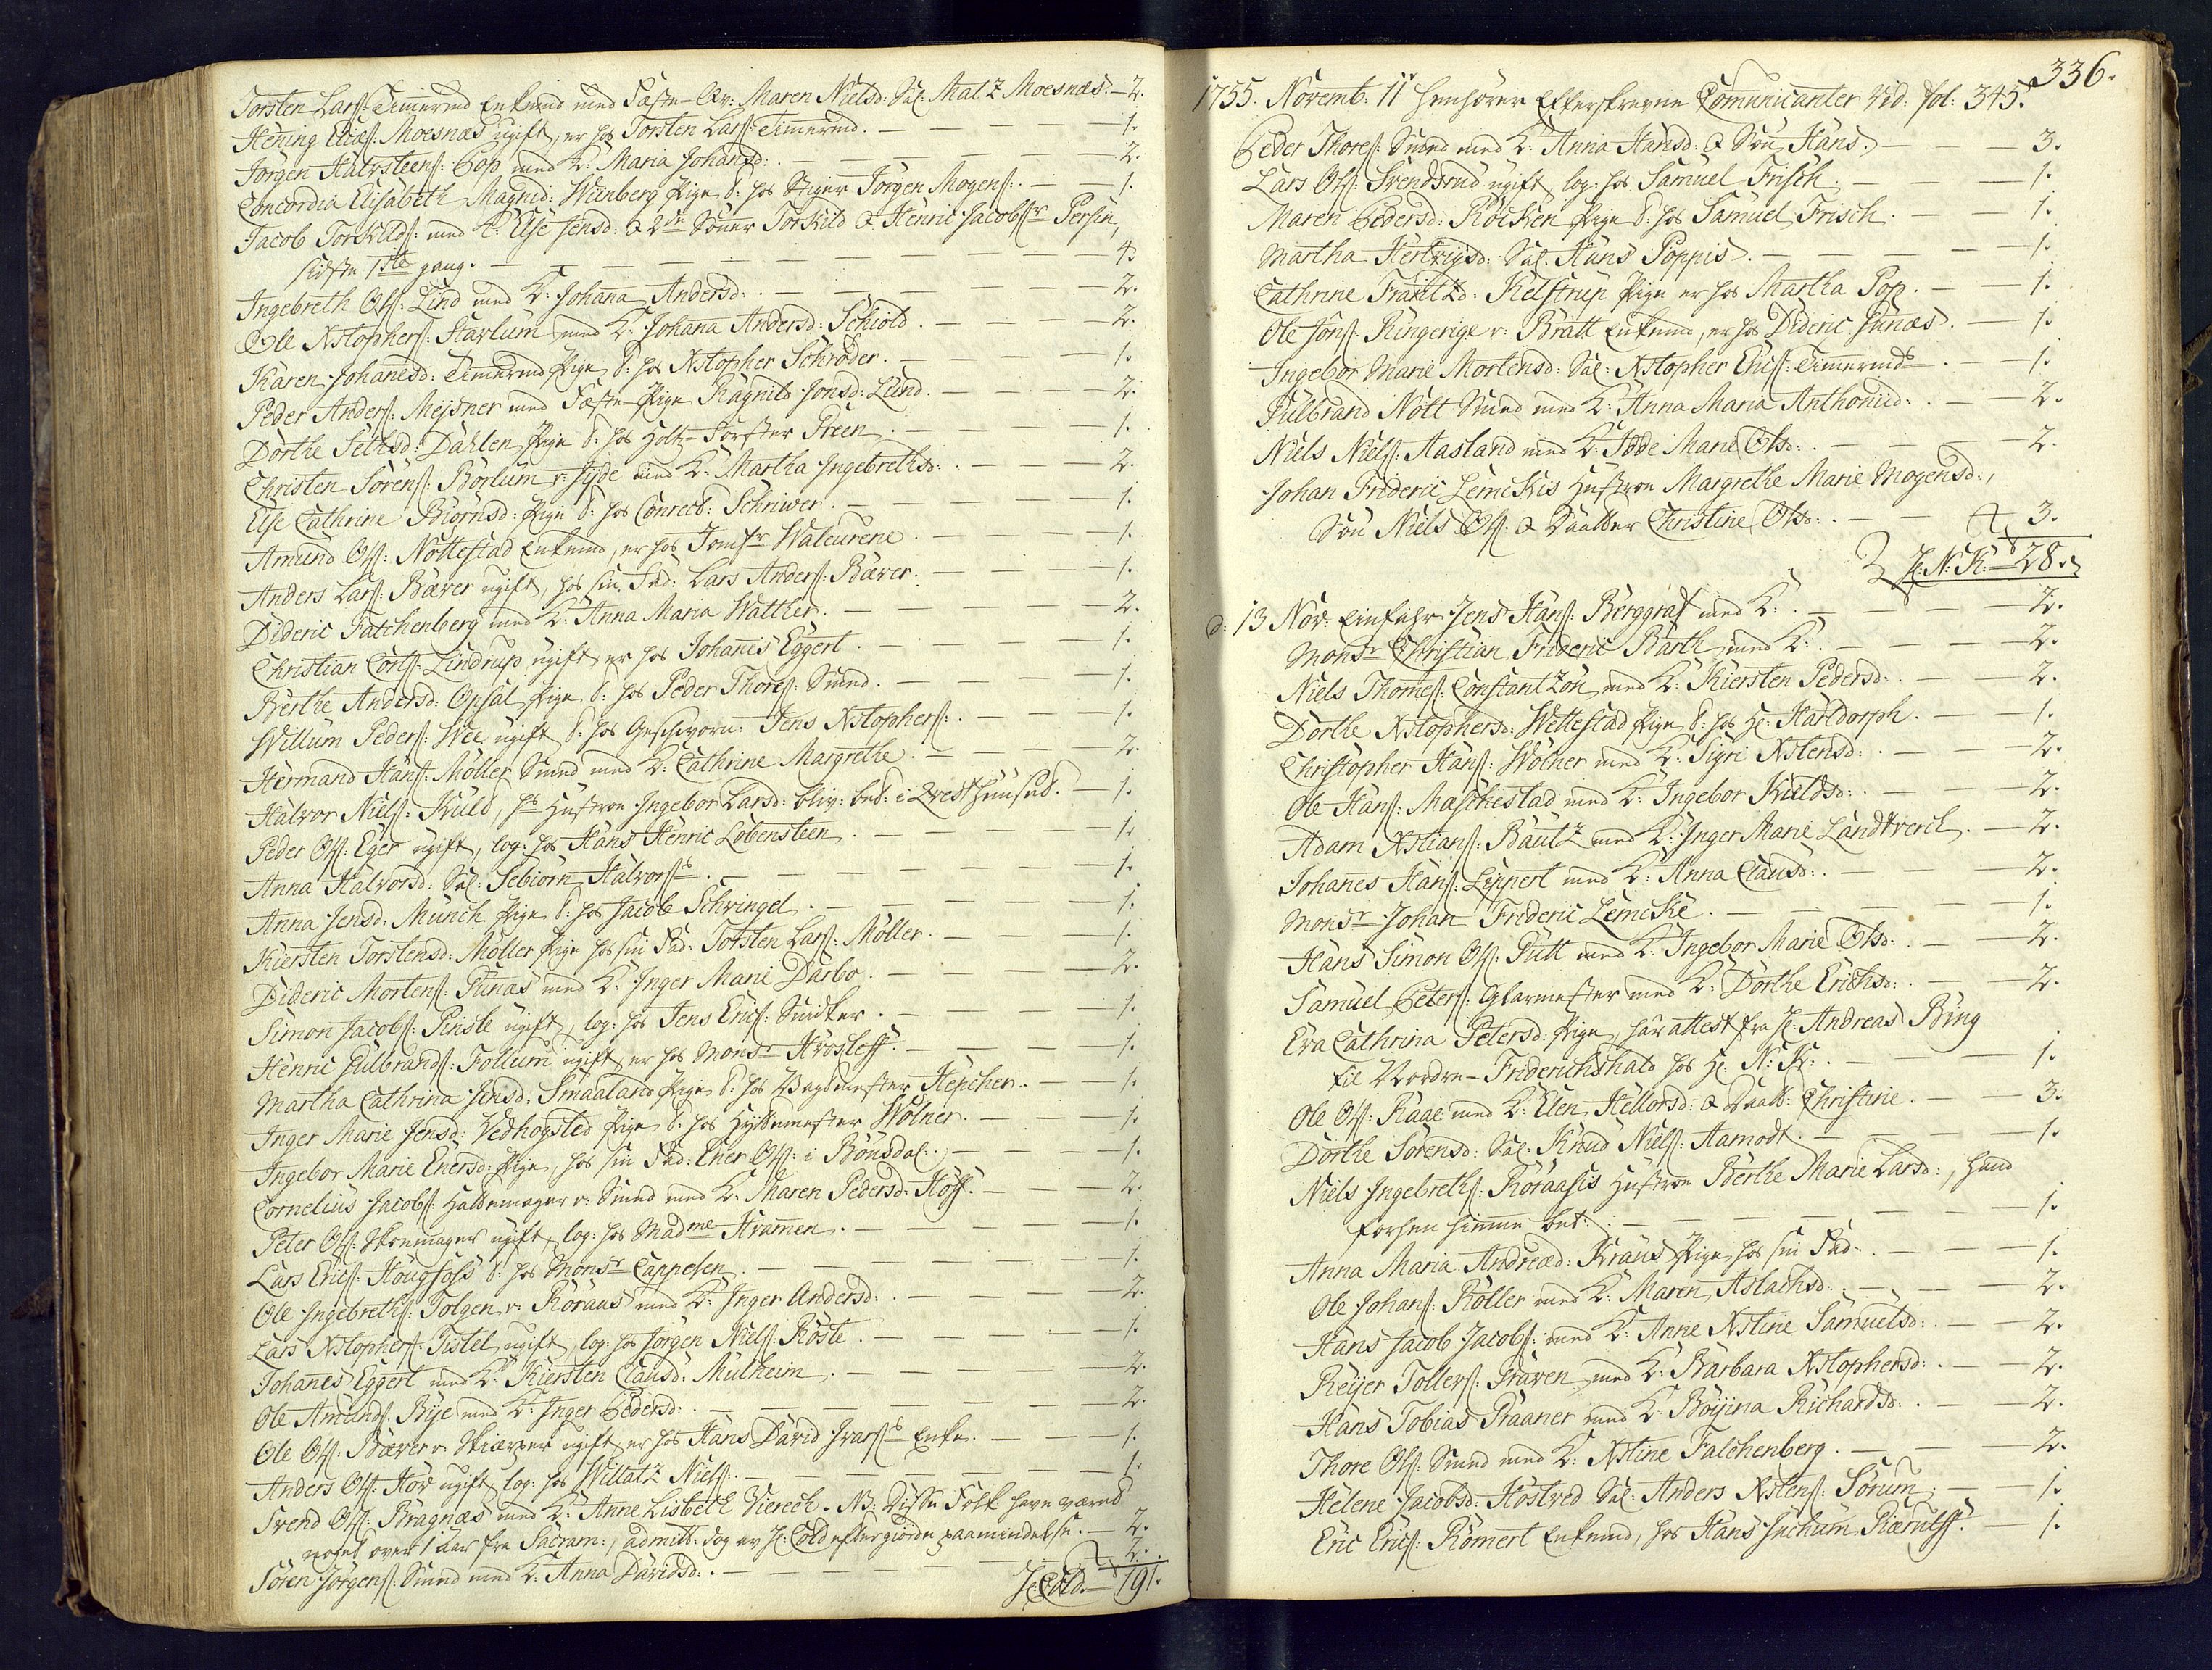 Torsten Lars: Timermd Enkemd med Fæste-Qv: Maren Nielsd: Sal: Matz Moesnæs. — 2.
Hening Elias: Moesnæs ugift, er hos Torsten Lars: Timermd. — 1.
Jørgen Halvsteens: Pop med K: Maria Johansd: — 2.
Concordia Elisabeth Magnid: Wünberg Pige T: hos Stiger Jørgen Mogens: — 1.
Jacob Torkilds: med K: Else Jensd: & 2de Sønner Torkild & Henric Jacobsr Persen,
sidste 1ste gang. — 4
Ingebreth Ols: Lind med K: Johana Andersd: — 2.
Ole Xstophers: Harlum med K: Johana Andersd: Schiold. — 2.
Karen Johanesd: Timermd Pige T: hos Xstopher Schrøder. — 1.
Peder Anders: Meisner med Fæste-Pige Ragnild Jonsd: Lund. — 2.
Dorthe Sethsd: Dahlen Pige T: hos Holtz-Førster Preen. — 1.
Christen Sørens: Børlum v: Jyde med K: Martha Ingebrethsd: — 2.
Else Cathrine Biørnsd: Pige T: hos Conrect: Schriwer. — 1.
Amund Ols: Nøttestad Enkemd, er hos Jomfr Waleurene. — 1.
Anders Lars: Bæver ugift, hos sin Fad: Lars Anders: Bæver. — 1.
Dideric Falchenberg med K: Anna Maria Walther. — 2.
Christian Corts: Lindrup ugift er hos Johanes Eggert. — 1.
Berthe Andersd: Opsal Pige T: hos Peder Thores: Smed. — 1.
Willum Peders: Wee ugift T: hos Geschvorn: Jens Xstophers: — 1.
Hermand Hans: Møller Smed med K: Cathrine Margrethe. — 2.
Halvor Niels: Kuld, hs Hustroe Ingebor Larsd: bliv: bet: i — 1.
Peder Ols: Eger ugift, log: hos Hans Henric Løbensteen. — 1.
Anna Halvorsd: Sal: Sebiørn Halvors — 1.
Anna Jensd: Munch Pige T: hos Jacob Schvingel. — 1.
Kiersten Torstensd: Møller Pige hos sin Fad: Torsten Lars: Møller. — 1.
Dideric Mortens: Punæs med K: Inger Marie Darbo. — 2.
Simon Jacobs: Pinsle ugift, log: hos Jens Erics: Snidker. — 1.
Henric Gulbrands: Follum ugift er hos Monsr Hrosleff. — 1.
Martha Cathrina Jensd: Smaaland Pige T: hos Bagemester Hencher. — 1.
Inger Marie Jensd: Vedhogsted Pige T: hos Hyttemester Wølner. — 1.
Ingebor Marie Enersd: Pige, hos sin Fad: Ener Ols: i Bønsdal. — 1.
Cornelius Jacobs: v: Smed med K: Maren Pedersd: Høff. — 2.
Peter Ols: Skoemager ugift, log: hos Madme Hramen. — 1.
Lars Erics: Hougfoss T: hos Monsr Cappelen. — 1.
Ole Ingebreths: Tolgen v: Røraas med K: Inger Andersd: — 2.
Lars Xstophers: Tistel ugift, log: hos Jørgen Niels: Røste. — 1.
Johanes Eggert med K: Kiersten Clausd: Mulheim. — 2.
Ole Amunds: Bye med K: Inger Pedersd: — 2.
Ole Ols: Bæver v: Skiærper ugift er hos Hans David Ivars Enke. — 1.
Anders Ols: Hov ugift log: hos Willatz Niels: — 1.
Svend Ols: Bragnæs med K: Anne Lisbeth Viereck. NB: Disse Folk have været
noget over 1 Aar fra Sacram:, admitt: dog av H: Cold efter giorde paamindelse. — 2.
Søren Jørgens: Smed med K: Anna Davidsd: — 2.
H: Cold. — 191.
336.
1755. Novemb: 11 henhører Efterskrevne Comunicanter Vid: fol: 345.
Peder Thores: Smed med K: Anna Hansd: & Søn Hans. — 3.
Lars Ols: Svendsrud ugift, log: hos Samuel Frisch. — 1.
Maren Pedersd: Røiken Pige T: hos Samuel Frisch. — 1.
Martha Hertvigsd: Sal: Hans Poppis. — 1.
Cathrine Frantzd: Kelstrup Pige er hos Martha Pop. — 1.
Ole Jons: Ringerige v: Bratt Enkemd, er hos Dideric Punæs. — 1.
Ingebor Marie Mortensd: Sal: Xstopher Erics: Timermds. — 1.
Gulbrand Nøtt Smed med K: Anna Maria Anthonid: — 2.
Niels Niels: Aasland med K: Idde Marie Olsd: — 2.
Johan Frideric Lemckis Hustroe Margrethe Marie Mogensd:,
Søn Niels Ols: & Daatter Christine Olsd: — 3.
H: N: K: — 28.
d: 13 Nov: Einfahr Jens Hans: Berggraf med K: — 2.
Monsr Christian Frideric Barth med K: — 2.
Niels Thomes: Constantzon med K: Kiersten Pedersd: — 2.
Dorthe Xstophersd: Wettestad Pige T: hos H: Harldorph. — 1.
Christopher Hans: Wølner med K: Sigri Xstensd: — 2.
Ole Hans: Maschestad med K: Ingebor Kuldsd: — 2.
Adam Xstians: Bautz med K: Inger Marie Landtverch. — 2.
Johanes Hans: Lippert med K: Anna Clausd: — 2.
Monsr Johan Frideric Lemcke. — 1.
Hans Simon Ols: Putt med K: Ingebor Marie Olsd: — 2.
Samuel Peters: Glarmester med K: Dorthe Erichsd: — 2.
Eva Cathrina Petersd: Pige, har attest fra H: Andreas Bing
til Nordre-Friderichshald hos H: N: K: — 1.
Ole Ols: Raae med K: Elen Hellorsd: & Daatt: Christine. — 3.
Dorthe Sørensd: Sal: Knud Niels: Aamodt. — 1.
Niels Ingebreths: Røraasis Hustroe Berthe Marie Larsd:, hand
forhen hiemme bet: — 1.
Anna Maria Andread: Kraus Pige hos sin Fad: — 1.
Ole Johans: Røller med K: Maren Aslachsd: — 2.
Hans Jacob Jacobs: med K: Anne Xstine Samuelsd: — 2.
Reijer Tollers: Graven med K: Barbara Xstophersd: — 2.
Hans Tobias Praaner med K: Bøijina Richardsd: — 2.
Thore Ols: Smed med K: Xstine Falchenberg. — 2.
Helene Jacobsd: Høstved Sal: Anders Xstens: Sørum. — 1.
Eric Erics: Rømert Enkemd, hos Hans Juchum Biærulff. — 1.